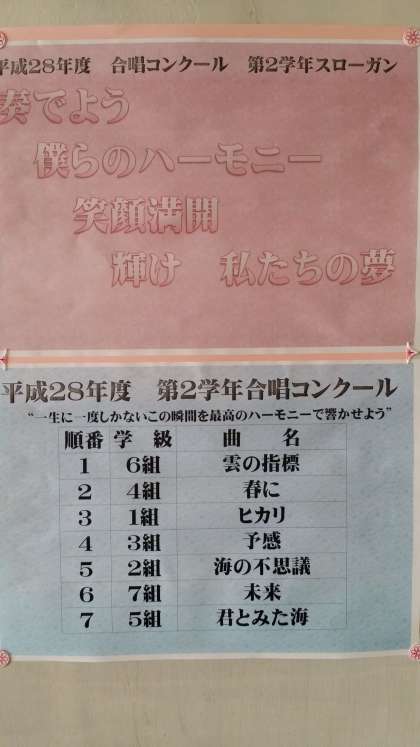 平成28年度 合唱コンクール 第2学年スローガン
奏でよう
僕らのハーモニー
笑顔満開
輝け 私たちの夢
平成28年度 第2学年合唱コンクール
“一生に一度しかないこの瞬間を最高のハーモニーで響かせよう”
順番 学 級 曲 名
1 6組 雲の指標
2 4組 春に
3 1組 ヒカリ
4 3組 予感
5 2組 海の不思議
6 7組 未来
7 5組 君とみた海